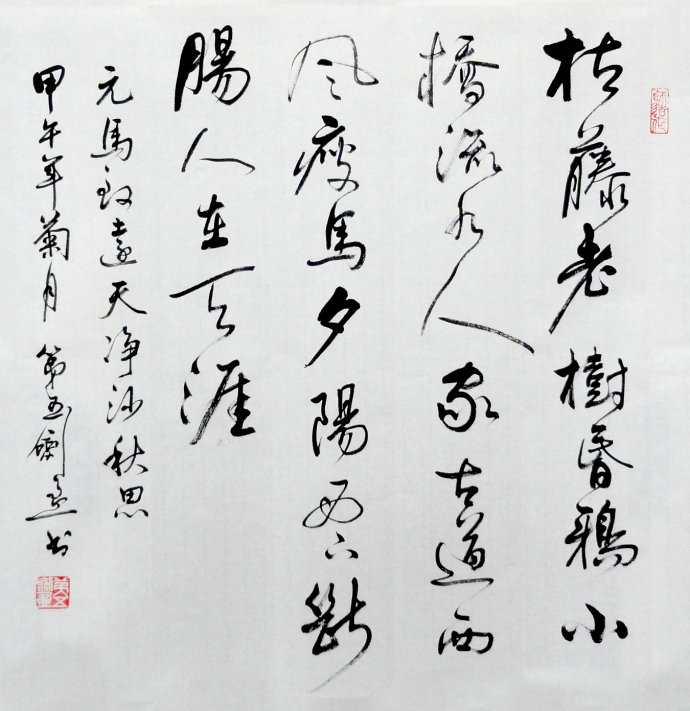 枯藤老樹昏鴉小
橋流水人家古道西
風瘦馬夕陽西下斷
腸人在天涯
元馬致遠天净沙秋思
甲午年菊月 第五劍書